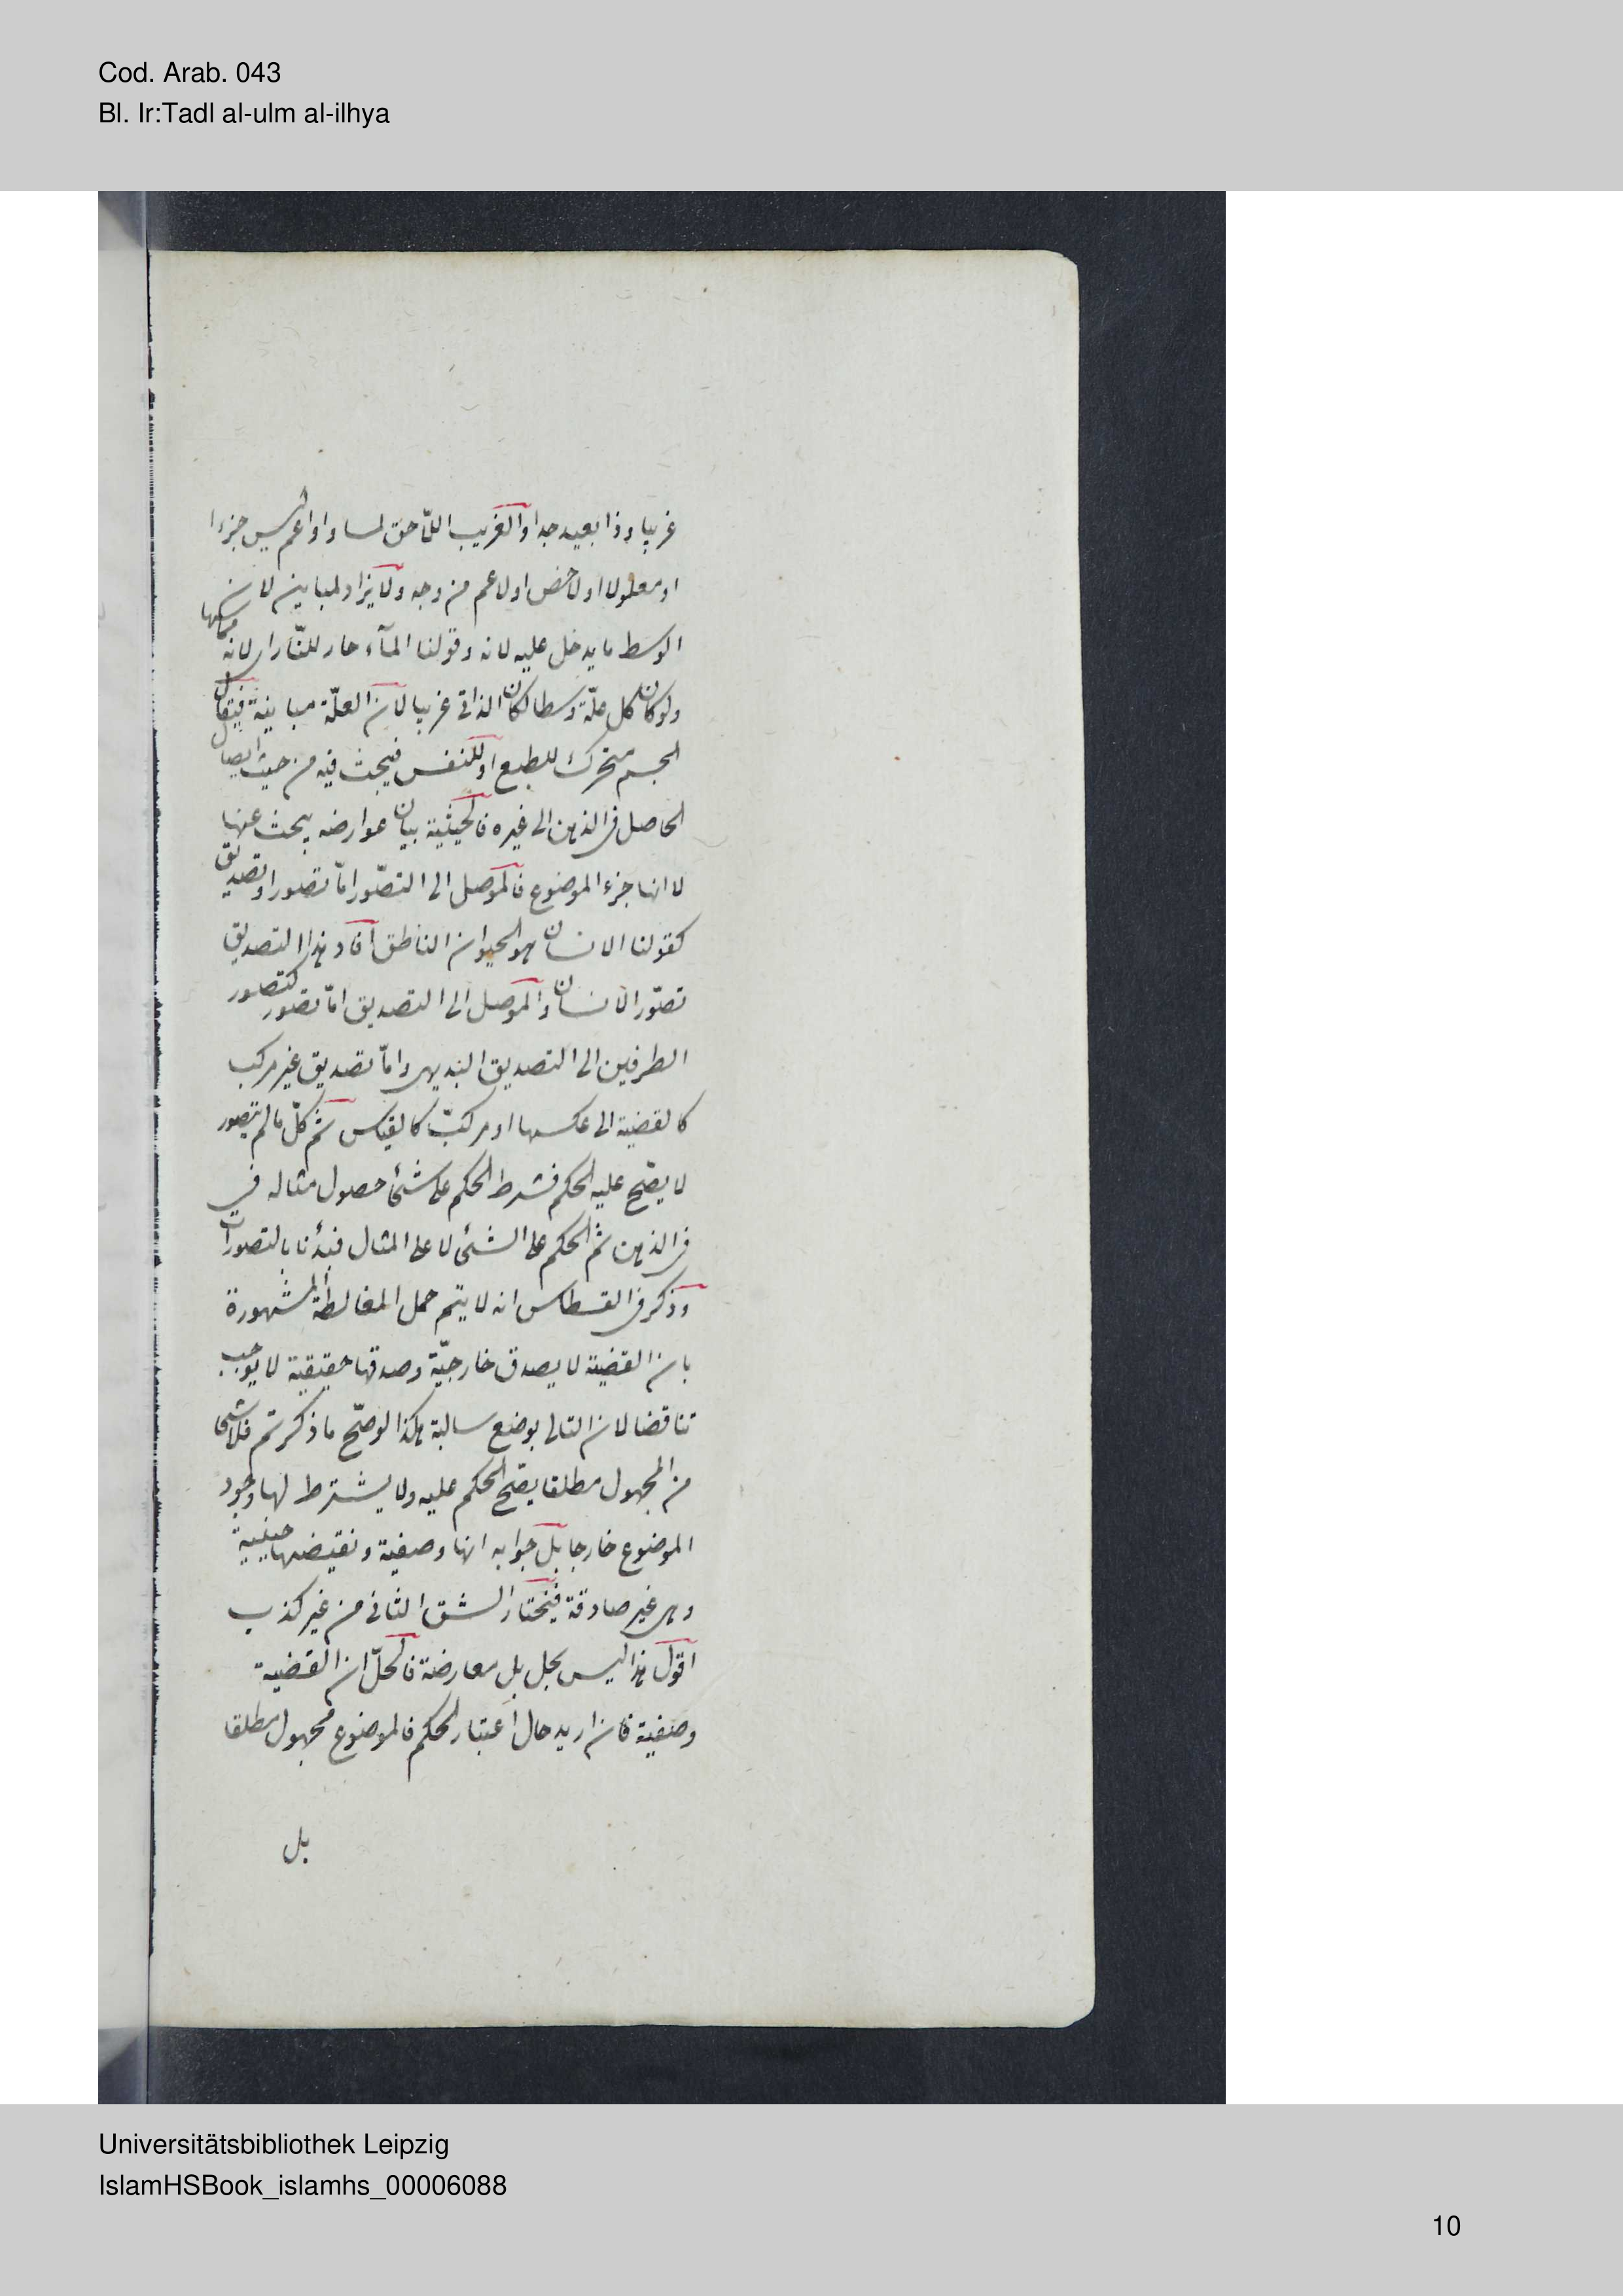 Cod. Arab. 043
Bl. Ir:Tadl al-ulm al-ilhya
غريبا وذا بعيد جدا والغريب اللّاحق لمساو او اعم ليس جزءا
او معلولا او لاخص او لاعم من وجه ولا يزاد لمباين لان
الوسط ما يدخل عليه لانه وقولنا المآء حار للنّار اى لانه مماسها
ولو كان كل علّة وسطا لكان الذاتى غريبا لان العلّة مباينة فيقال
الجسم متحرك للطبع او للنفس فيبحث فيه من حيث ايصال
الحاصل فى الذهن الى غيره فالحيثية بيان عوارضه يبحث عنها
لا انها جزء الموضوع فالموصل الى التصّور امّا تصور او تصديق
كقولنا الانسان هو الحيوان الناطق افاد هذا التصديق
تصّور الانسان والموصل الى التصديق امّا تصور كتصور
الطرفين الى التصديق البديهى وامّا تصديق غير مركب
كالقضية الى عكسها او مركبّ كالقياس ثم كلّ ما لم يتصور
لا يصّح عليه الحكم فشرط الحكم على شئ حصول مثاله في
فى الذهن ثم الحكم على الشئ لا على المثال فبدأنا بالتصورات
وذكر فى القسطاس انه لا يتم حمل المغالطة المشهورة
بان القضية لا يصدق خارجيّة وصدقها حقيقية لا يوجب
تناقضا لان التالى بوضع سالبة هكذا لو صّح ما ذكرتم فلا شئ
من المجهول مطلقا يصّح الحكم عليه ولا يشترط لها وجود
الموضوع خارجا بل جوابه انها وصفية ونقيضها حينية
وهى غير صادقة فيختار الشق الثانى من غير كذب
اقول هذا ليس بحل بل معارضة فالحلّ ان القضية
وصفية فان اريد حال اعتبار الحكم فالموضوع مجهول مطلقا
بل
Universitätsbibliothek Leipzig
IslamHSBook_islamhs_00006088
10